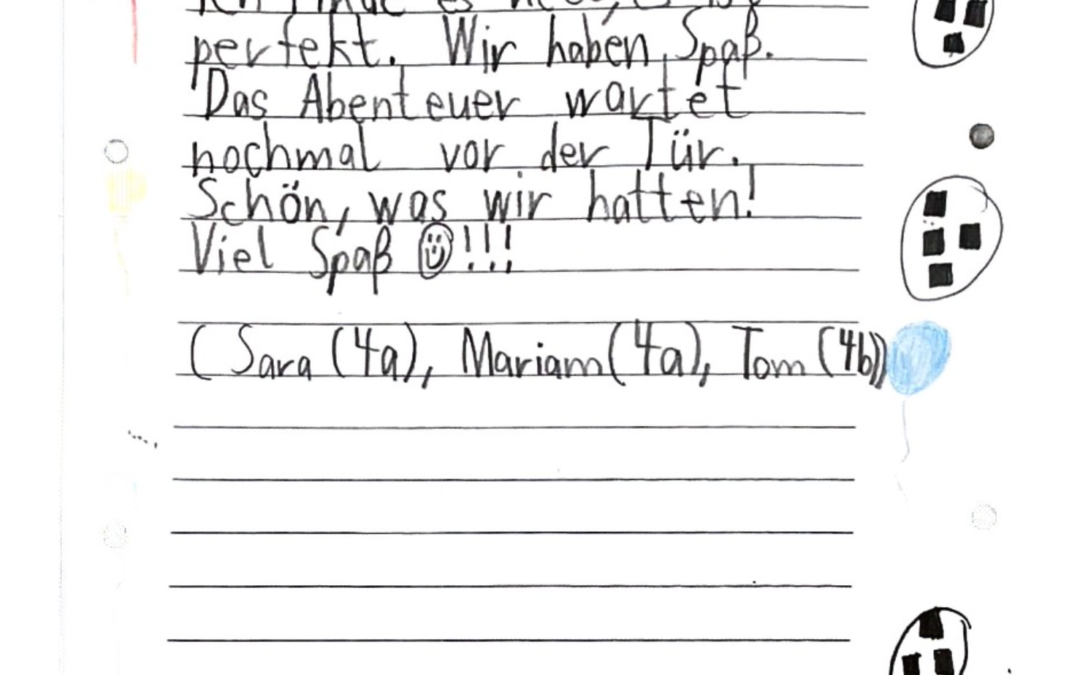 Ich finde es
perfekt. Wir haben Spaß.
Das Abenteuer wartet
nochmal vor der Tür.
Schön, was wir hatten!
Viel Spaß ☺!!!
(Sara (4a), Mariam (4a), Tom (4b))